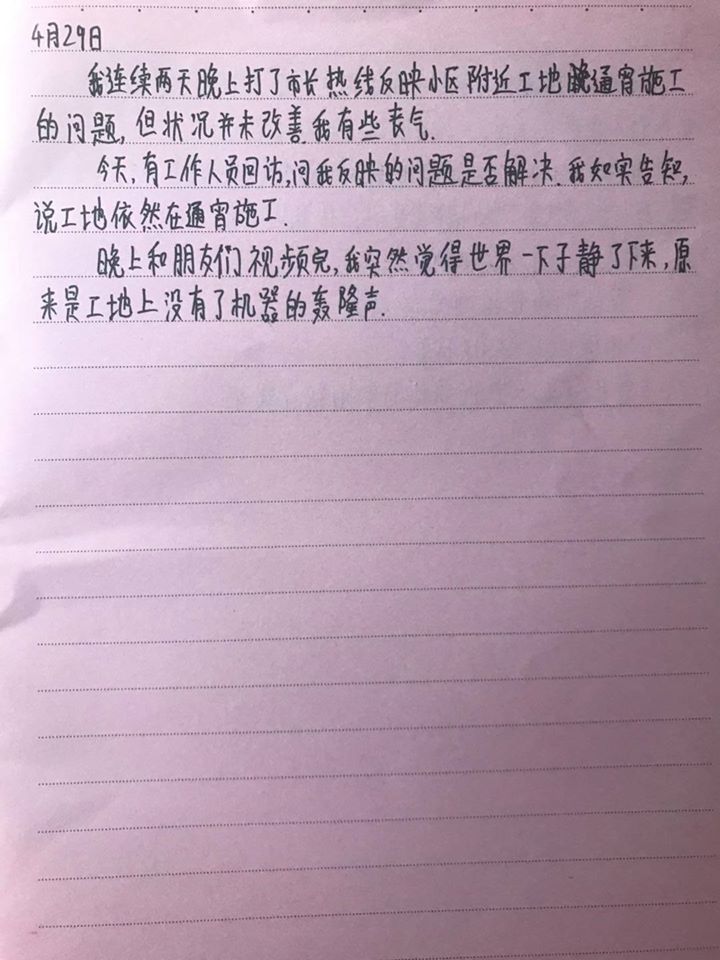 4月29日
我连续两天晚上打了市长热线反映小区附近工地通宵施工
的问题,但状况并未改善.我有些丧气.
今天,有工作人员回访,问我反映的问题是否解决.我如实告知,
说工地依然在通宵施工.
晚上和朋友们视频完,我突然觉得世界一下子静了下来,原
来是工地上没有了机器的轰隆声.